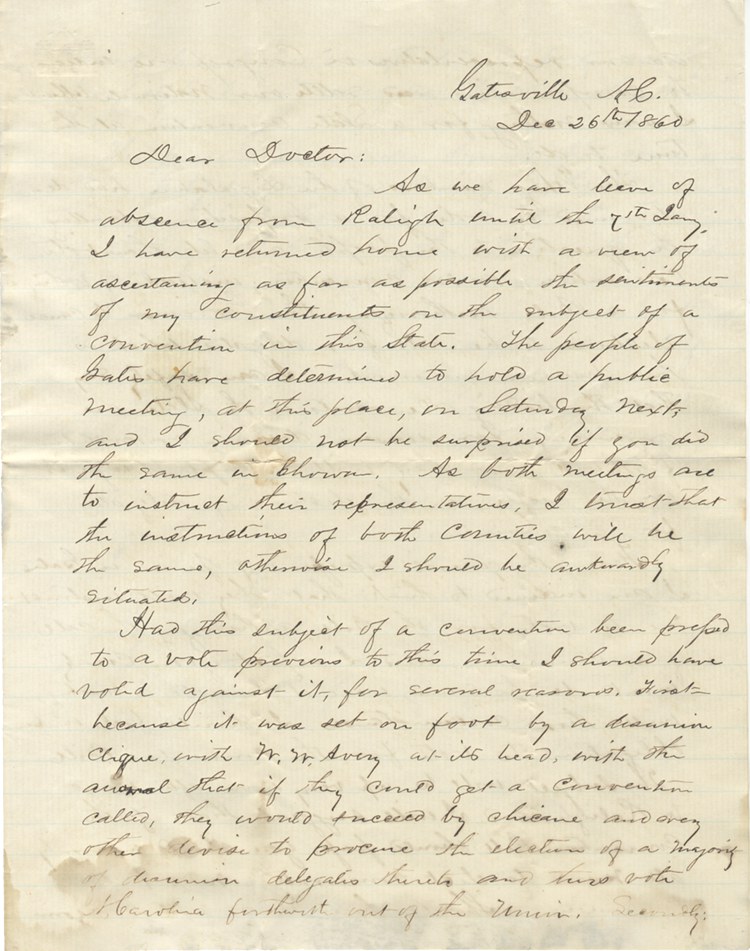 Gatesville N.C.
Dec 26th/1860
Dear Doctor:
As we have leave of
abscence from Raligh until the 7th Jany,
I have returned home with a view of
ascertaining as far as possible the sentiments
of my constituents on the subject of a
convention in this State. The people of
Gates have determined to hold a public
meeting, at this place, on Saturday next,
and I should not be surprised if you did
the same in Chowan. As both meetings are
to instruct their representatives, I trust that
the instructions of both Counties will be
the same, otherwise I should be awkwardly
situated.
Had this subject of a convention been pressed
to a vote previous to this time I should have
voted against it, for several reasons. First
because it was set on foot by a disunion
clique, with W. W. Avery at its head, with the
that if they could get a convention
called, they would succeed by chicane and every
other devise to procure the election of a majority
of disunion delegates thereto and thus vote
N Carolina forthwith out of the Union. Secondly: